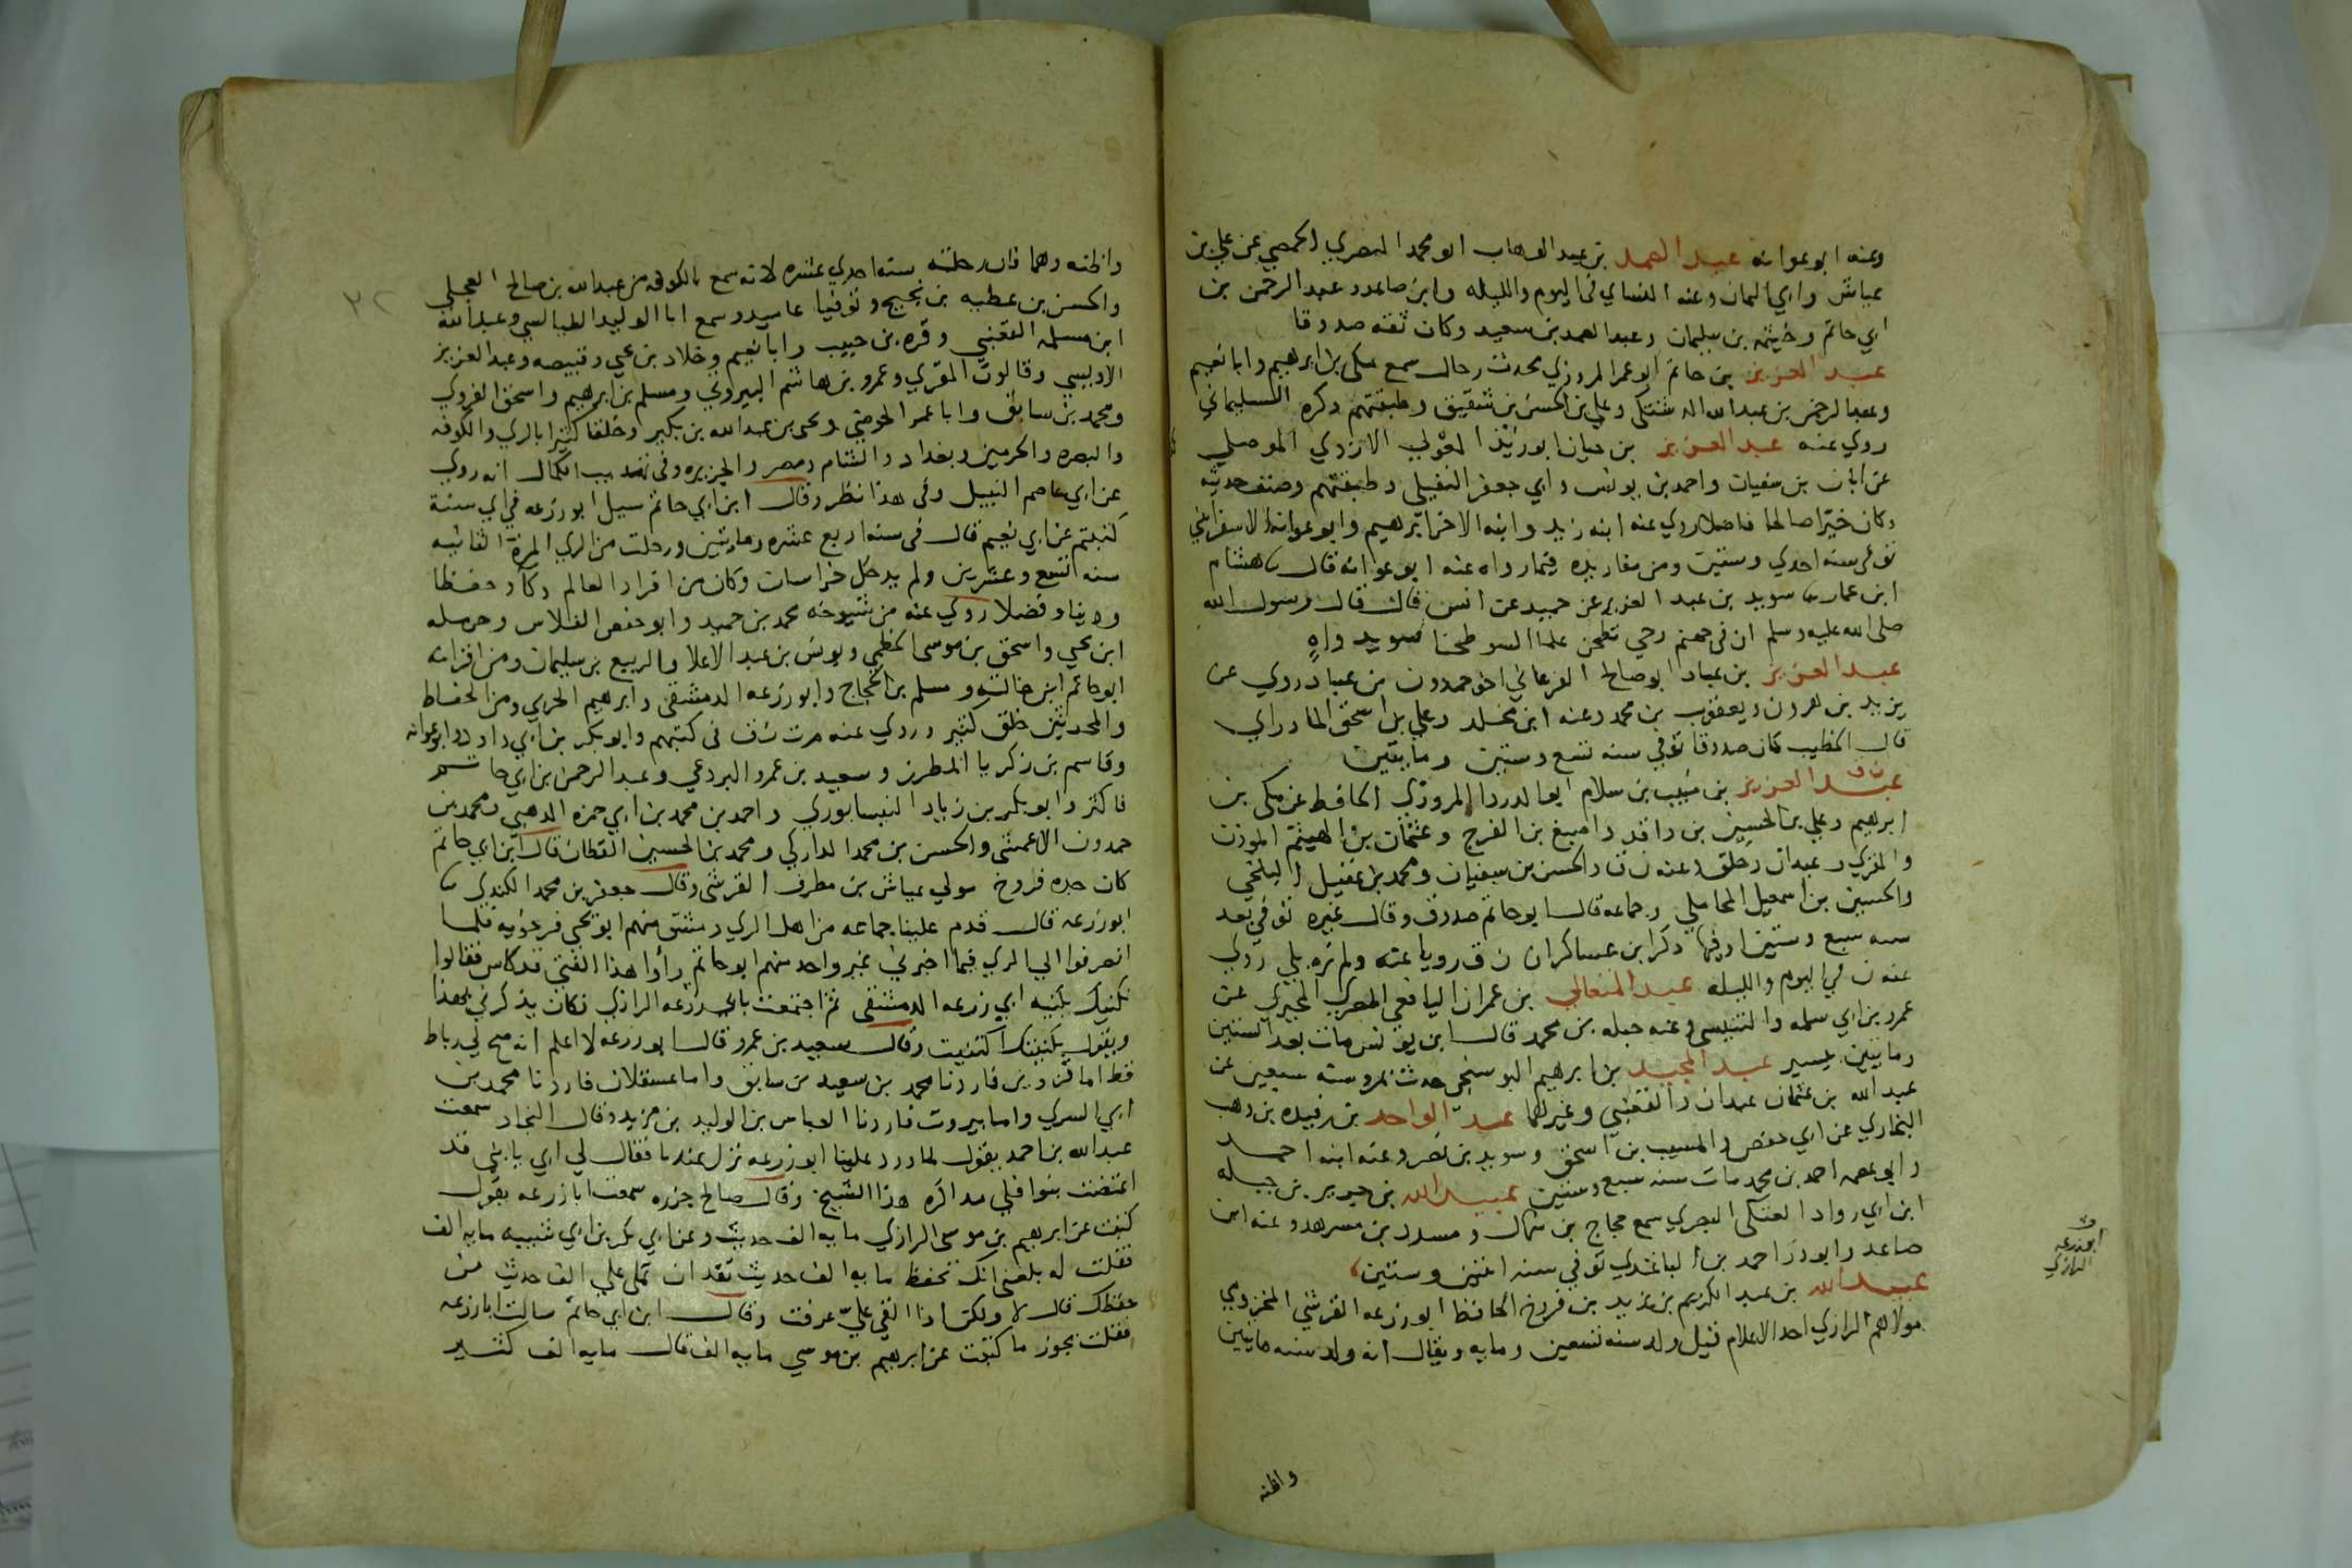 وعنه ابو عوانه عبد الصمد بن عبد الوهاب ابو محمد النصري الحمصي عن علي بن
عياش وابي اليمان وعنه النساي في اليوم والليله وابن صاعد وعبد الرحمن بن
ابي حاتم وخيثمه بن سليمان وعبد الصمد بن سعيد وكان ثقه صدوقا
عبد العزيز بن حاتم ابو عمر المروزي محدث رحال سمع مكي بن ابرهيم وابا نعيم
وعبد الرحمن بن عبد الله الدشتكي وعلي بن الحسن بن شقيق وطبقتهم ذكره السليماني
روي عنه عبد العزيز بن حيان ابو زيد المعولي الازدي الموصلي
عن ابان بن سفيان واحمد بن يونس وابي جعفر النفيلي وطبقتهم وصنف حديثه
وكان خيرا صالحا فاضلا روي عنه ابنه زيد وابنه الاخر ابرهيم وابو عوانه الاسفرايني
توفي سنه احدي وستين ومن مفاريده فيما رواه عنه ابو عوانه قال ثنا هشام
ابن عمار ثنا سويد بن عبد العزيز عن حميد عن انس قال قال رسول الله
صلى الله عليه وسلم ان في جهنم رحي تطحن علما السو طحنا سويد واه
عبد العزيز بن عباد ابو صالح الفرغاني اخو حمدون بن عباد روي عن
يزيد بن هرون ويعقوب بن محمد وعنه ابن مخلد وعلي بن اسحق المادراي
قال الخطيب كان صدوقا توفي سنه تسع وستين ومايتين
عبد العزيز بن منيب بن سلام ابو الدردا المروزي الحافظ عن مكي بن
ابرهيم وعلي بن الحسين بن واقد واصبغ بن الفرج وعثمان بن الهيثم الموذن
والمقري وعبدان وخلق وعنه ن ق والحسن بن سفيان ومحمد بن عقيل البلخي
والحسين بن اسمعيل المحاملي وجماعه قال ابو حاتم صدوق وقال غيره توفي بعد
سنه سبع وستين اوفيها ذكر ابن عساكر ان ن ق رويا عنه ولم نره بلي روي
عنه ن في اليوم والليله عبد المتعالي بن عمران اليافعي المصري الجيزي عن
عمرو بن ابي سلمه والتنيسي وعنه جبله بن محمد قال ابن يونس مات بعد الستين
ومايتين بيسير عبد المجيد بن ابرهيم البوسنجي حدث بمرو سنه سبعين عن
عبد الله بن عثمان عبدان والقعنبي وغيرهما عبد الواحد بن رفيده بن وهب
البخاري عن ابي حفص والمسيب بن اسحق وسويد بن نصر وعنه ابنه احمد
وابو عصمه احمد بن محمد مات سنه سبع وستين عبيد الله بن جرير بن جبله
ابن ابي رواد العتكي البصري سمع حجاج بن منهال ومسدد بن مسرهد وعنه ابن
صاعد وابو ذر احمد بن الباغندي توفي سنه اثنين وستين
عبيد الله بن عبد الكريم بن يزيد بن فروخ الحافظ ابو زرعه القرشي المخزومي
مولاهم الرازي احد الاعلام قيل ولد سنه تسعين ومايه ويقال انه ولد سنه مايتين
ابو زرعه
الرازي
واظنه
٣٢
واظنه وهما فان رحلته سنه احدي عشره لانه سمع بالكوفه من عبد الله بن صالح العجلي
والحسن بن عطيه بن نجيح وتوفيا عاميذ وسمع ابا الوليد الطيالسي وعبد الله
ابن مسلمه القعنبي وقره بن حبيب وابا نعيم وخلاد بن يحي وقبيصه وعبد العزيز
الاويسي وقالون المقري وعمرو بن هاشم البيروتي ومسلم بن ابرهيم واسحق الفروي
ومحمد بن سابق وابا عمر الحوضي ويحي بن عبد الله بن بكير وخلقا كثيرا بالري والكوفه
والبصره والحرمين وبغداد والشام ومصر والجزيره وفي تهذيب الكمال انه روي
عن ابي عاصم النبيل وفي هذا نظر وقال ابن ابي حاتم سيل ابو زرعه في اي سنة
كتبتم عن ابي نعيم قال في سنه اربع عشره ومايتين ورحلت من الري المرة الثانيه
سنه اسبع وعشرين ولم يدخل خراسان وكان من افراد العالم ذكاو حفظا
ودينا وفضلا روي عنه من شيوخه محمد بن حميد وابو حفص الفلاس وحرمله
ابن يحي واسحق بن موسى الخطمي ويونس بن عبد الاعلا والربيع بن سليمان ومن اقرانه
ابو حاتم ابن خالته ومسلم بن الحجاج وابو زرعه الدمشقي وابرهيم الحربي ومن الحفاظ
والمحدثين خلق كثير وروي عنه م ت ن ق في كتبهم وابو بكر بن ابي داود وابو عوانه
وقاسم بن زكريا المطرز وسعيد بن عمرو البردعي وعبد الرحمن بن ابي حاتم
فاكثر وابو بكر بن زياد النيسابوري واحمد بن محمد بن ابي حمزه الذهبي ومحمد بن
حمدون الاعمشي والحسن بن محمد الداركي ومحمد بن الحسين القطان قال ابن ابي حاتم
كان جده فروخ مولي عياش بن مطرف القرشي وقال جعفر بن محمد الكندي ثنا
ابو زرعه قال قدم علينا جماعه من اهل الري دمشق منهم ابو يحي فرخويه فلما
انصرفوا الي الري فيما اخبرني غير واحد منهم ابو حاتم رأوا هذا الفتي قد كاس فقالوا
نكنيك بكنيه ابي زرعه الدمشقي ثم اجتمعت بابي زرعه الرازي فكان يذكرني بهذا
ويقول بكنيتك اكتنيت وقال سعيد بن عمرو قال ابو زرعه لا اعلم انه صح لي رباط
قط اما قزوين فاردنا محمد بن سعيد بن سابق واما عسقلان فاردنا محمد بن
ابي السري واما بيروت فاردنا العباس بن الوليد بن مزيد وقال النجاد سمعت
عبد الله بن احمد يقول لما ورد علينا ابو زرعه نزل عندنا فقال لي ابي يا بني قد
اعتضت بنوافلي مذاكره هذا الشيخ وقال صالح جزره سمعت ابا زرعه يقول
كتبت عن ابرهيم بن موسى الرازي مايه الف حديث وعن ابي بكر بن ابي شيبه مايه الف
فقلت له بلغني انك تحفظ مايه الف حديث تقدر ان تملي علي الف حديث من
حفظك قال لا ولكن اذا القي علي عرفت وقال ابن ابي حاتم سالت ابا زرعه
فقلت يجوز ما كتبت عن ابرهيم بن موسي مايه الف قال مايه الف كثير